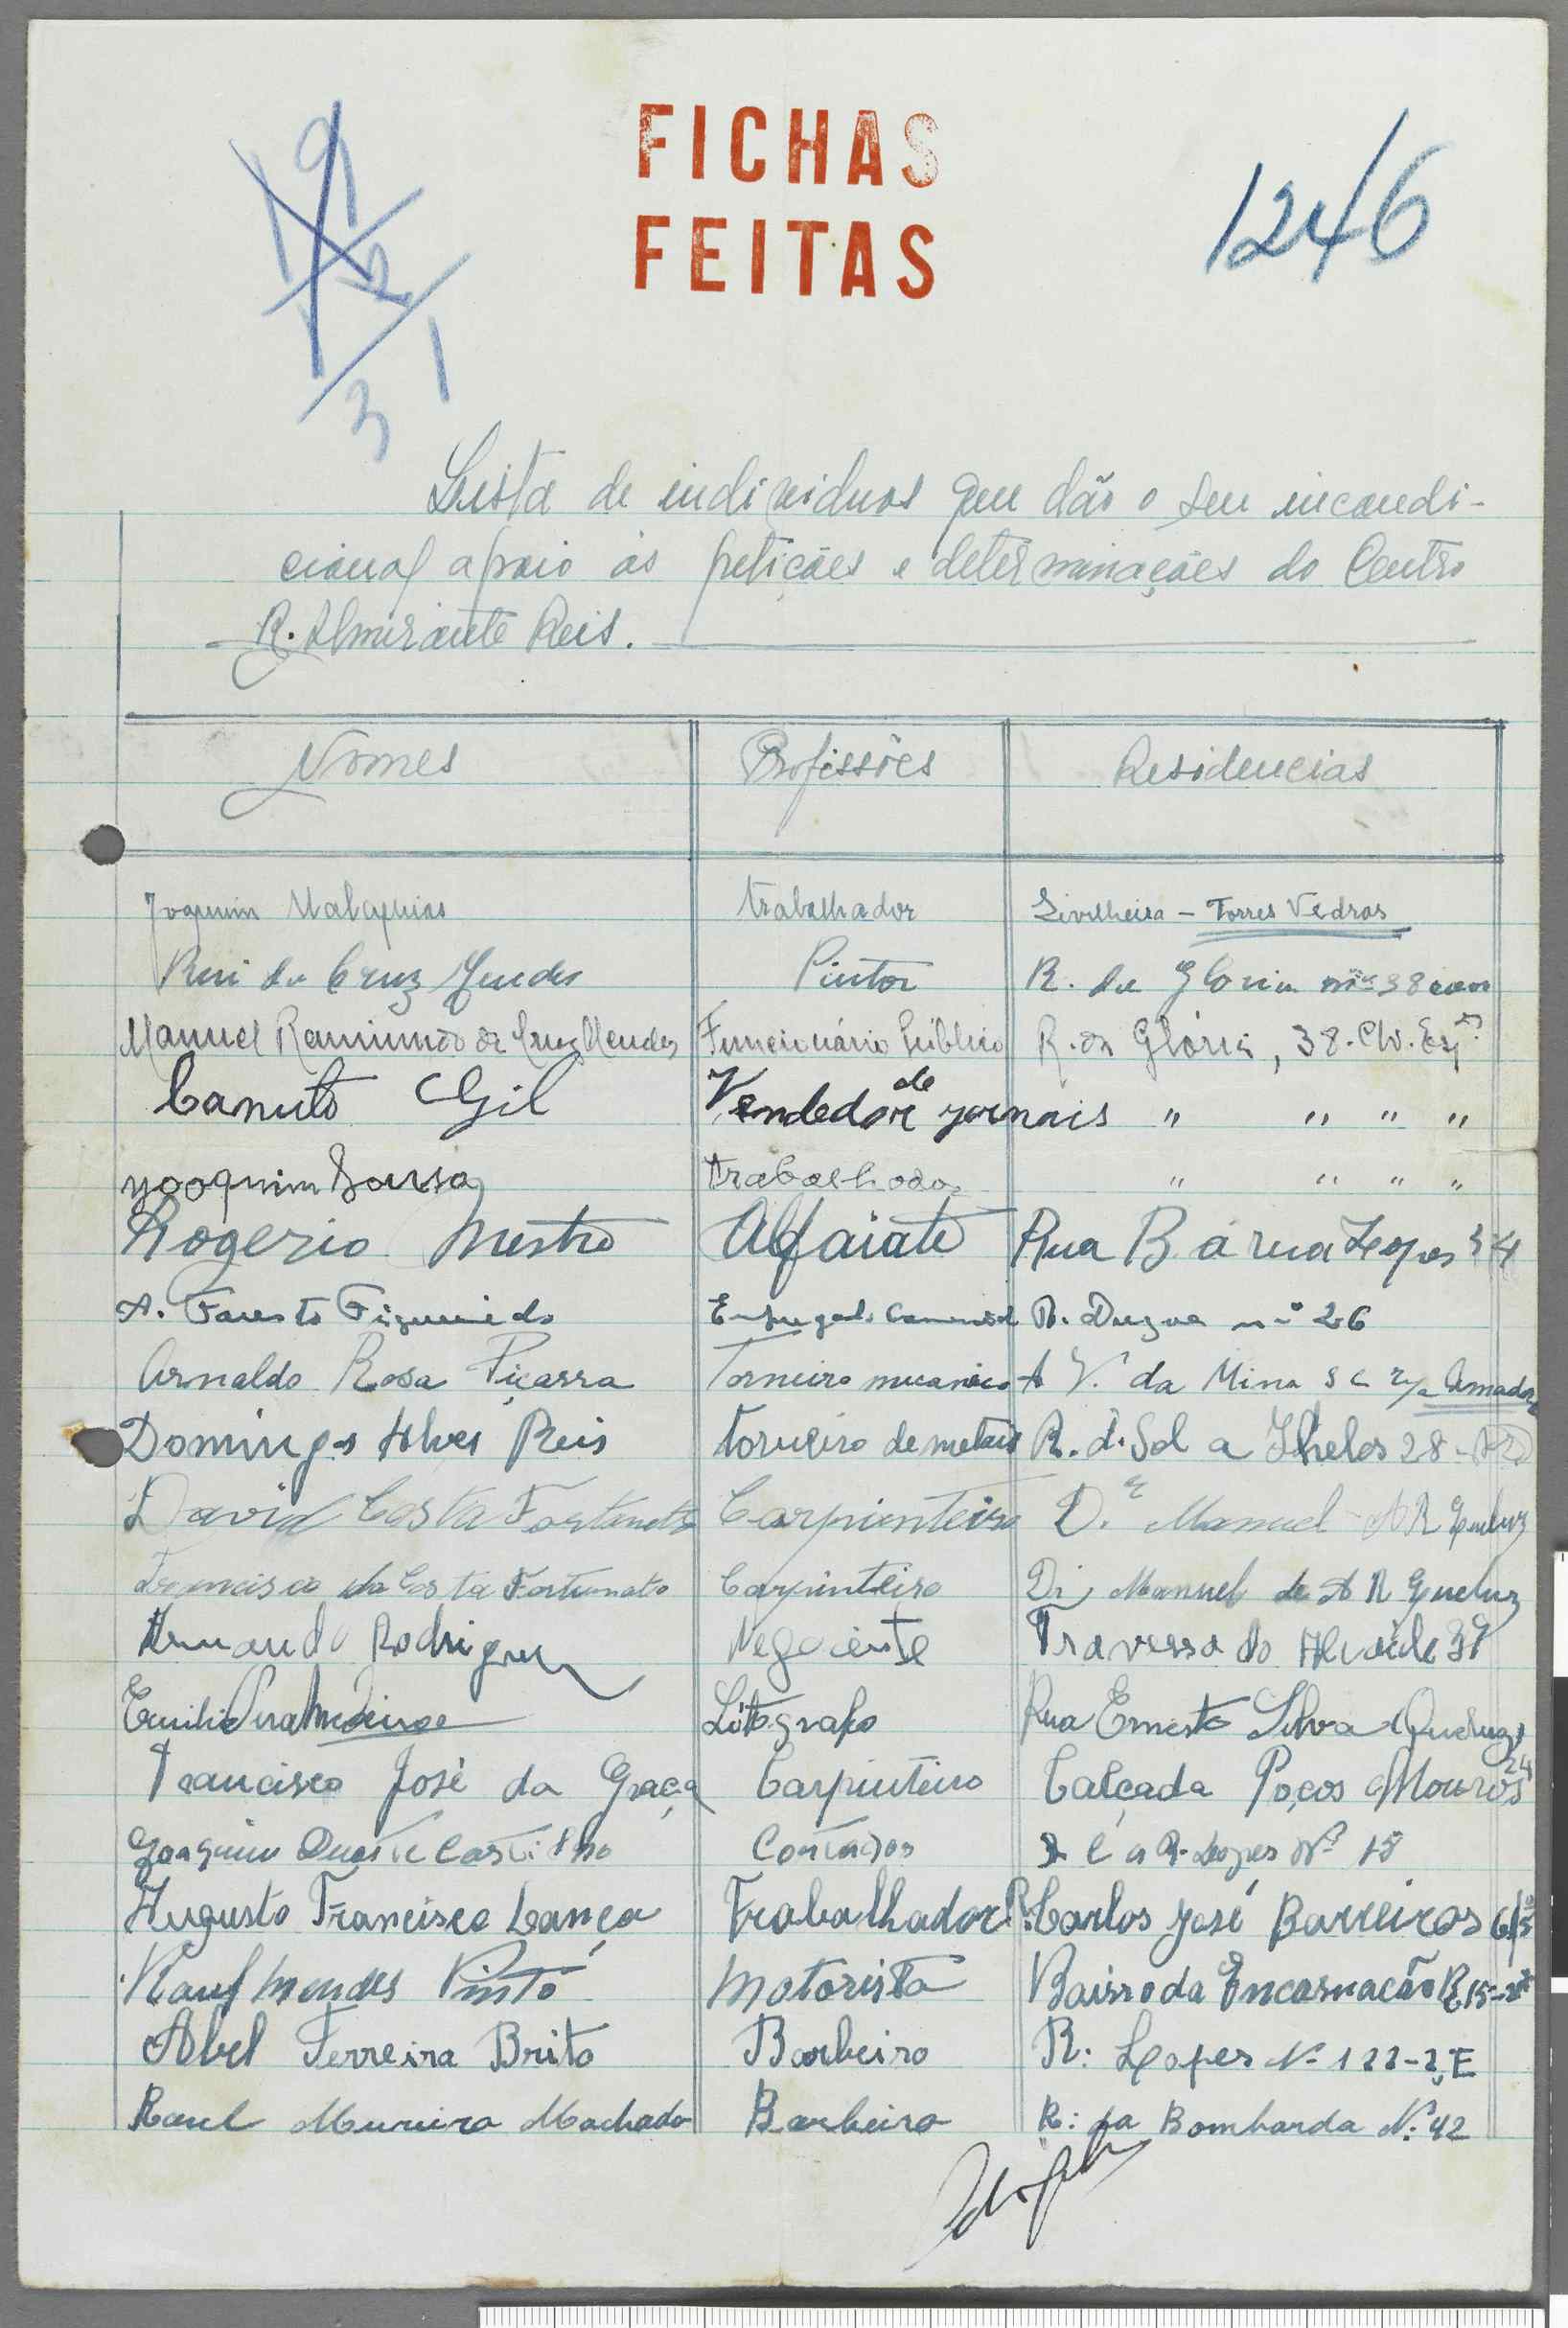 FICHAS
FEITAS
1246
Lista de individuos que dão o seu incondi-
cional apoio ás petições e determinações do Centro
R. Almirante Reis.
Nomes Profissões Residencias
Joaquim Malaquias trabalhador - Torres Vedras
Rui da Cruz Mendes Pintor R. da Gloria nº 38
Manuel Raimundo da Cruz Mendes Funcionário Público R. da Glória, 38.
Canuto Gil Vendedor de jornais " " " "
yooquim Sousa trabalhador " " " "
Rogerio Mestre Alfaiate Rua Barua Lopes 34
A. Fausto Figueiredo Empregado Comercial R. nº 26
Arnaldo Rosa Piçarra Torneiro mecanico A V. da Mina Amadora
Domingos Alves Reis torneiro de metais R. do Sol a 28
David Costa Fortunato Carpinteiro Dr Manuel A R Queluz
Francisco da Costa Fortunato Carpinteiro Dr Manuel de A R Queluz
Armando Rodrigues Negociante Travessa do Alcaide 37
Emilio Litografo Rua Ernesto Silva Queluz
Francisco José da Graça Carpinteiro Calçada Poços Mouros 24
Joaquim Duarte Castilho Contador Lopes Nº 15
Augusto Francisco Lança Trabalhador R. Carlos José Barreiros
Raul Mendes Pinto Motorista Bairro da Encarnacão
Abel Ferreira Brito Barbeiro R: Lopes Nº 122-2,E
Raul Moreira Machado Barbeiro R: da Bombarda Nº: 42